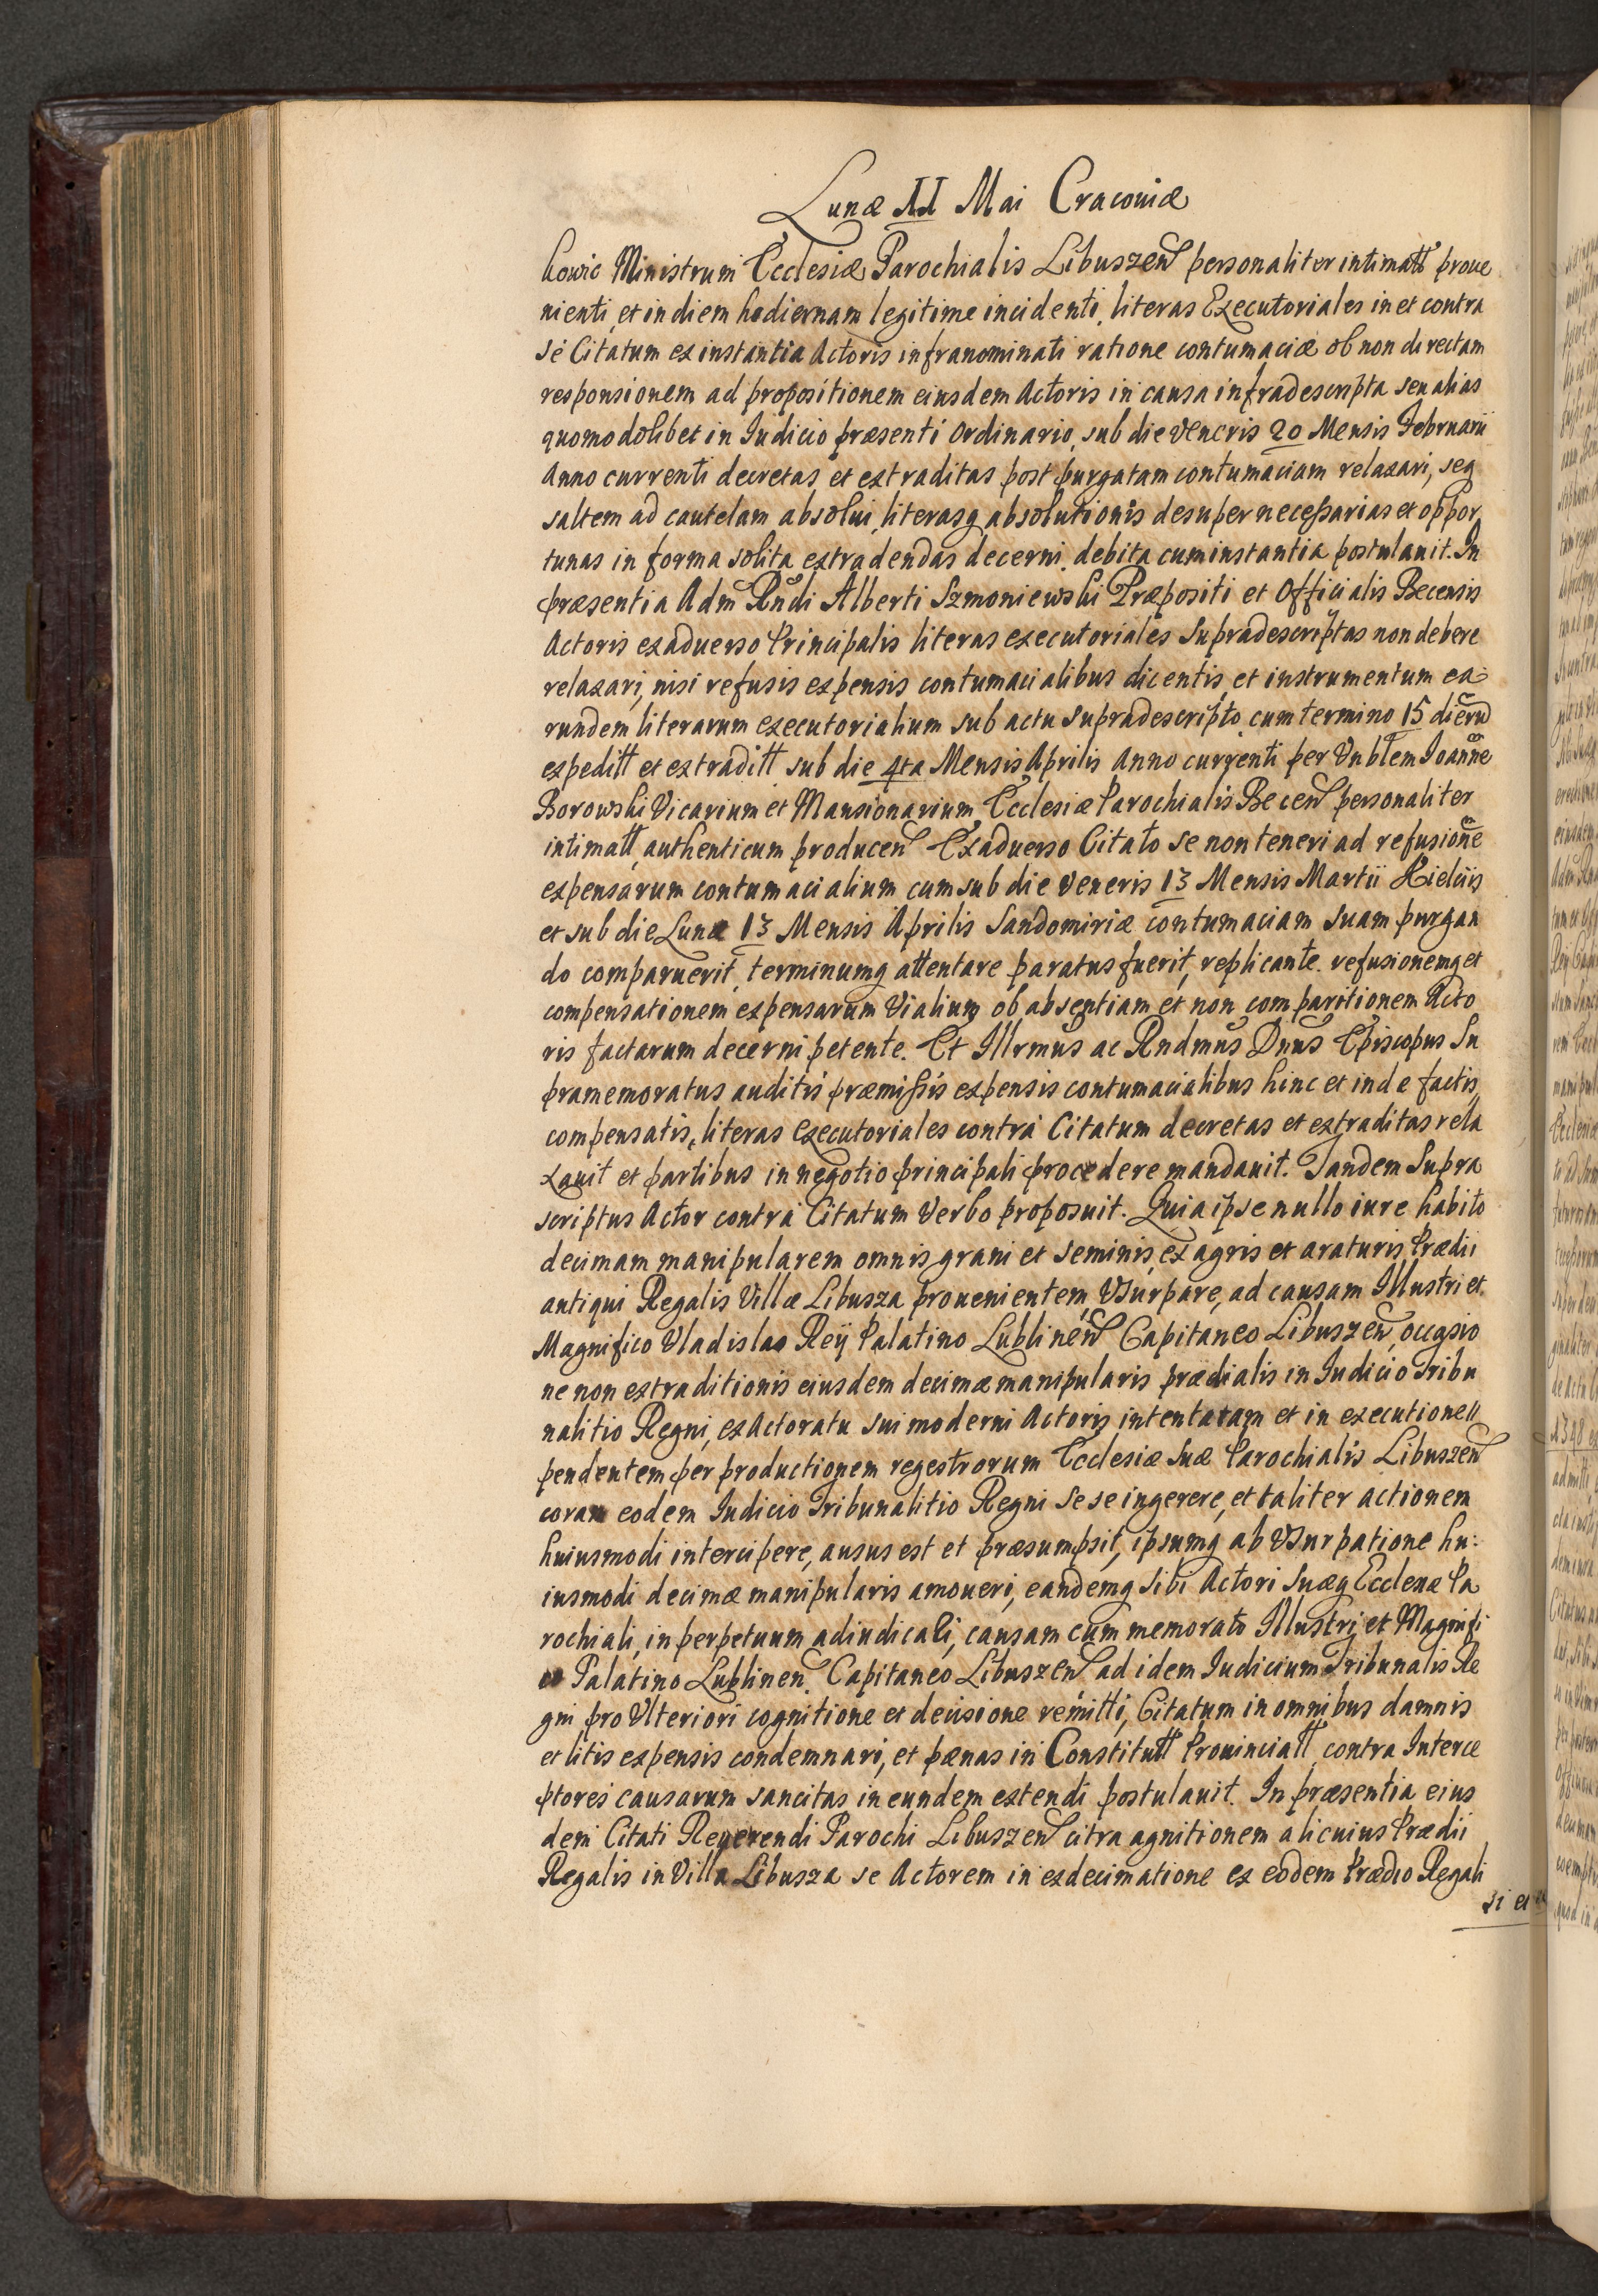 Lunæ 11 Mai Cracouiæ
kowic Ministrum Ecclesiæ Parochialis Libuszen personaliter intimatt proue
nienti et in diem hodiernam legitime incidenti, literas Executoriales in et contra
se Citatum ex instantia Actoris infranominati ratione contumaciæ ob non directam
responsionem ad propositionem eiusdem Actoris in causa infradescripta seu alias
quomodolibet in Iudicio præsenti ordinario, sub die Veneris 20 Mensis Februarii
Anno currenti decretas et extraditas post purgatam contumaciam relaxari, seq
saltem ad cautelam absolui, literasq absolutionis desuper necessarias et oppor
tunas in forma solita extradendas decerni debita cum instantia postulauit. In
præsentia Adm Rndi Alberti Szmoniewski Præpositi et Officialis Becensis
Actoris exaduerso Principalis literas executoriales supradescriptas non debere
relaxari, nisi refusis expensis contumacialibus dicentis, et instrumentum ea
rundem literarum executorialium sub actu supradescripto cum termino 15 dierū
expeditt et extraditt sub die 4ta Mensis Aprilis Anno currenti per Vnblem Ioanne
Borowski Vicarium et Mansionarium Ecclesiæ Parochialis Becen personaliter
intimatt, authenticum producen Exaduerso Citato se non teneri ad refusione
expensarum contumacialium cum sub die Veneris 13 Mensis Martii Kielciis
et sub die Lunæ 13 Mensis Aprilis Sandomiriæ contumaciam suam purgan
do comparuerit, terminumq attentare paratus fuerit, replicante. refusionemq et
compensationem expensarum Vialium ob absentiam et non comparitionem Acto
ris factarum decerni petente. Et Illrmus ac Rndmus Dnus Episcopus Su
pramemoratus auditis præmissis expensis contumacialibus hinc et inde factis
compensatis, literas executoriales contra Citatum decretas et extraditas rela
xauit et partibus in negotio principali procedere mandauit. Tandem Supra
scriptus Actor contra Citatum Verbo proposuit. Quia ipse nullo iure habito
decimam manipularem omnis grani et seminis, ex agris et araturis Prædii
antiqui Regalis Villæ Libusza prouenientem, Vsurpare, ad causam Illustri et
Magnifico Vladislao Reij Palatino Lublinen Capitaneo Libuszen, occasio
ne non extraditionis eiusdem decimæ manipularis prædialis in Iudicio Tribu
nalitio Regni, ex Actoratu sui moderni Actoris intentatam et in executione
pendentem per productionem regestrorum Ecclesiæ suæ Parochialis Libuszen
coram eodem Iudicio Tribunalitio Regni sese ingerere, et taliter actionem
huiusmodi intercipere, ausus est et præsumpsit, ipsumq ab Vsurpatione hu:
iusmodi decimæ manipularis amoueri, eandemq sibi Actori suæq Ecclesiæ Pa
rochiali, in perpetuum adiudicari, causam cum memorato Illustri et Magnifi
co Palatino Lublinen, Capitaneo Libuszen ad idem Iudicium Tribunalis Re
gni pro Vlteriori cognitione et decisione remitti, Citatum in omnibus damnis
et litis expensis condemnari, et pænas in Constitutt Prouinciatt contra Interce
ptores causarum sancitas in eundem extendi postulauit. In præsentia eius
dem Citati Reuerendi Parochi Libuszen citra agnitionem alicuius Prædii
Regalis in Villa Libusza se Actorem in exdecimatione ex eodem Prædio Regali
si et